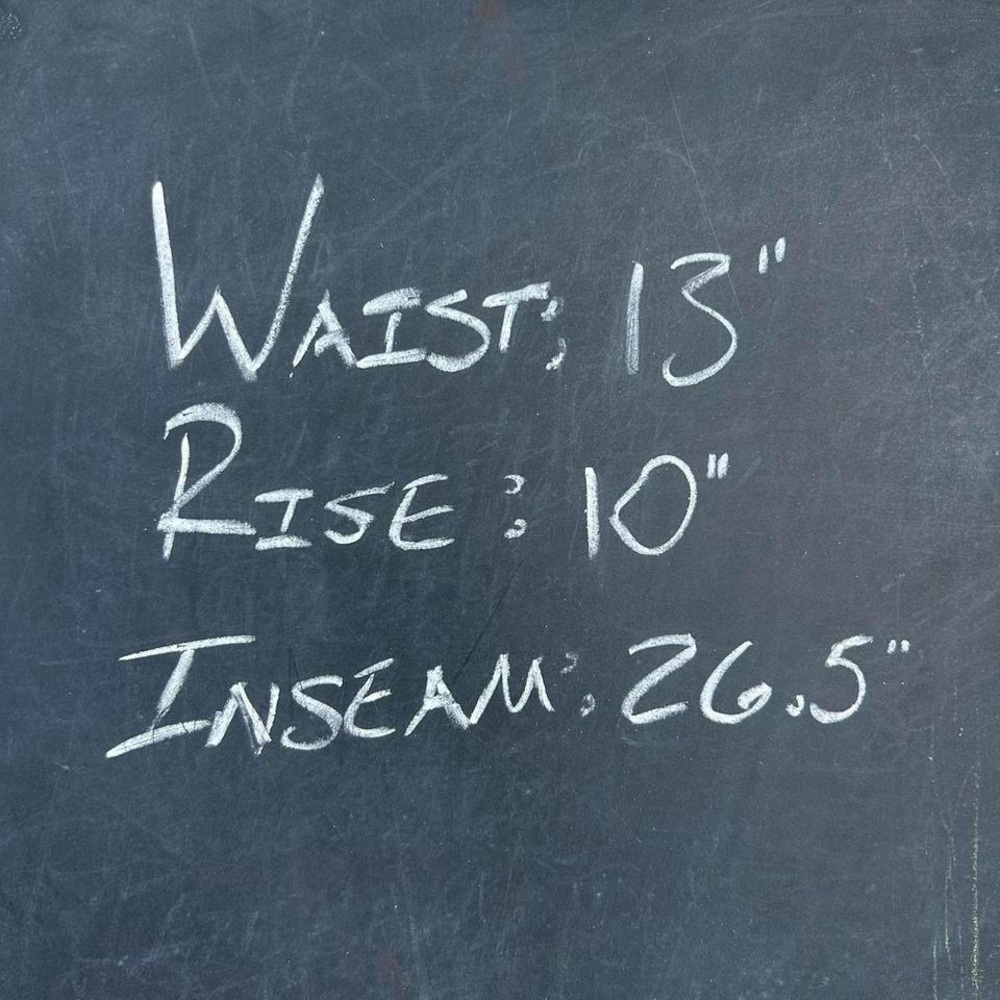 WAIST: 13"
RISE: 10"
INSEAM: 26.5"